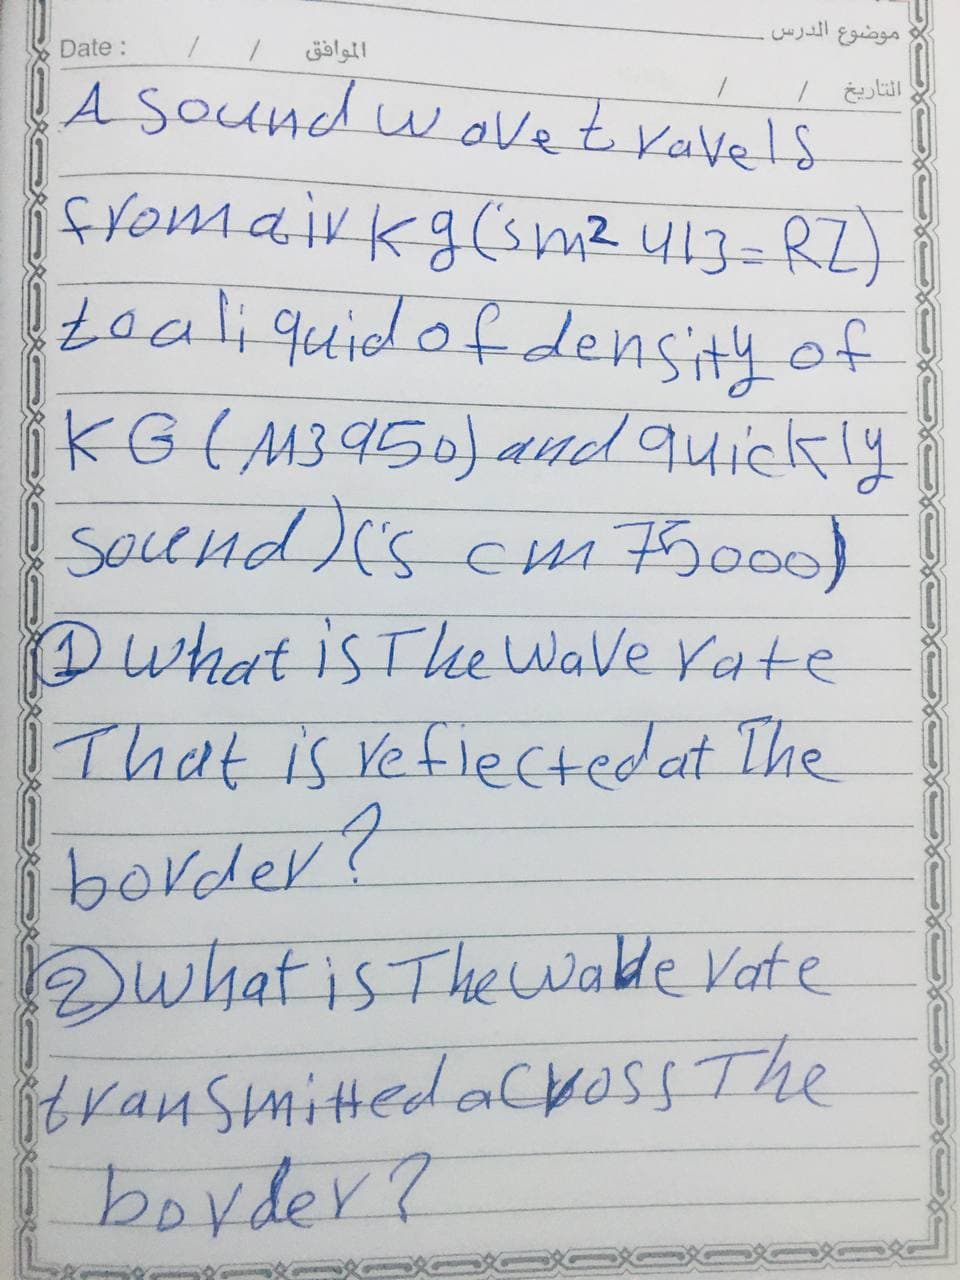 موضوع الدرس
Date : / / الموافق
/ / التاريخ
A sound wave travels
from air kg(s m2 413=RZ)
to a liquid of density of
KG (M3 950) and quickly
sound)(s cm 75000)
① What is The Wave rate
That is reflected at The
border?
② What is The wave rate
transmitted across The
border?